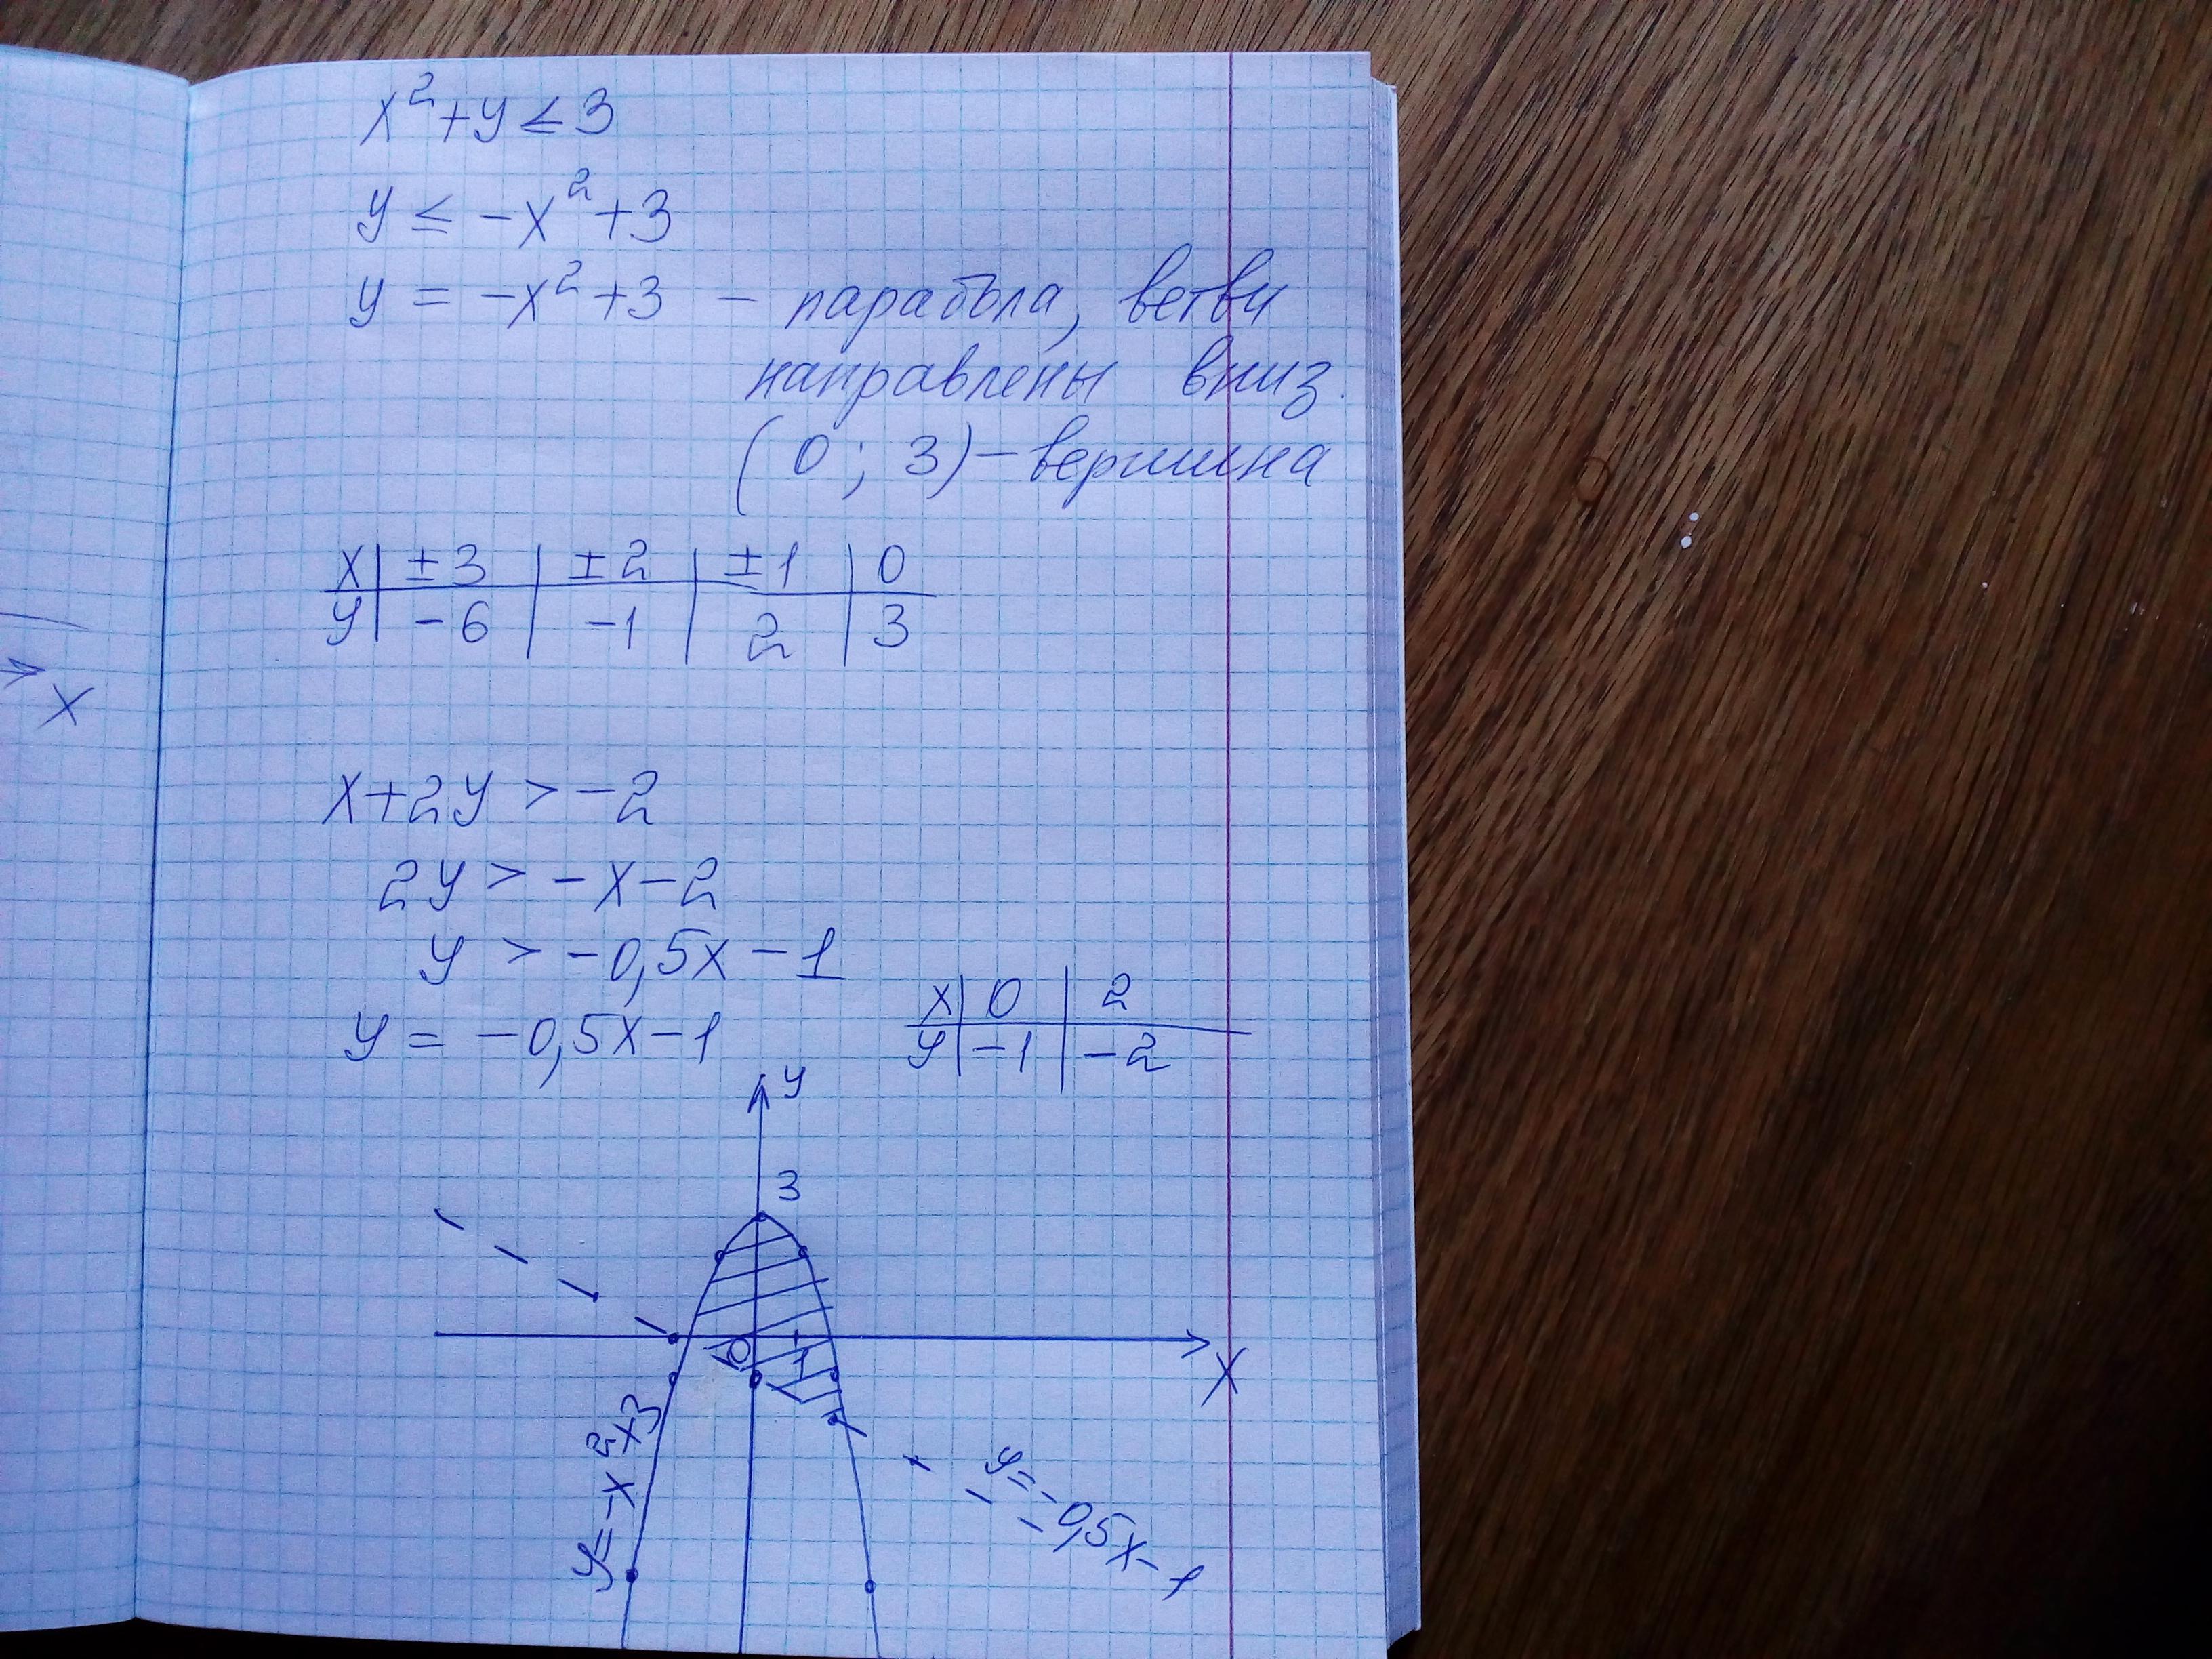 x² + y ≤ 3
y ≤ -x² + 3
y = -x² + 3 – парабола, ветви
направлены вниз.
(0; 3) – вершина
x | ±3 | ±2 | ±1 | 0
y | -6 | -1 | 2 | 3
x
x + 2y > -2
2y > -x - 2
y > -0,5x - 1
y = -0,5x - 1
x | 0 | 2
y | -1 | -2
y
3
0
1
x
y = -x² + 3
y = -0,5x - 1